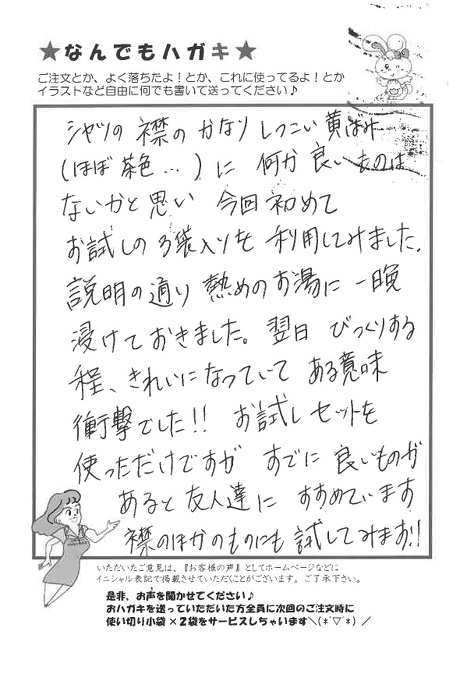 ★なんでもハガキ★
ご注文とか、よく落ちたよ！とか、これに使ってるよ！とか
イラストなど自由に何でも書いて送ってください♪
シャツの 襟の かなり しつこい 黄ばみ
(ほぼ 茶色…)に 何か 良いものは
ないかと思い 今回 初めて
お試しの3袋入りを 利用してみました。
説明の通り 熱めのお湯に 一晩
浸けておきました。翌日 びっくりする
程、きれいになっていて ある意味
衝撃でした!! お試しセットを
使っただけですが すでに 良いものが
あると 友人達に すすめています
襟のほかのものにも 試してみます!!
いただいたご意見は、『お客様の声』としてホームページなどに
イニシャル表記で掲載させていただくことがございます。ご了承下さい。
是非、お声を聞かせてください♪
おハガキを送っていただいた方全員に次回のご注文時に
使い切り小袋×2袋をサービスしちゃいます＼(*ﾟ▽ﾟ*)／